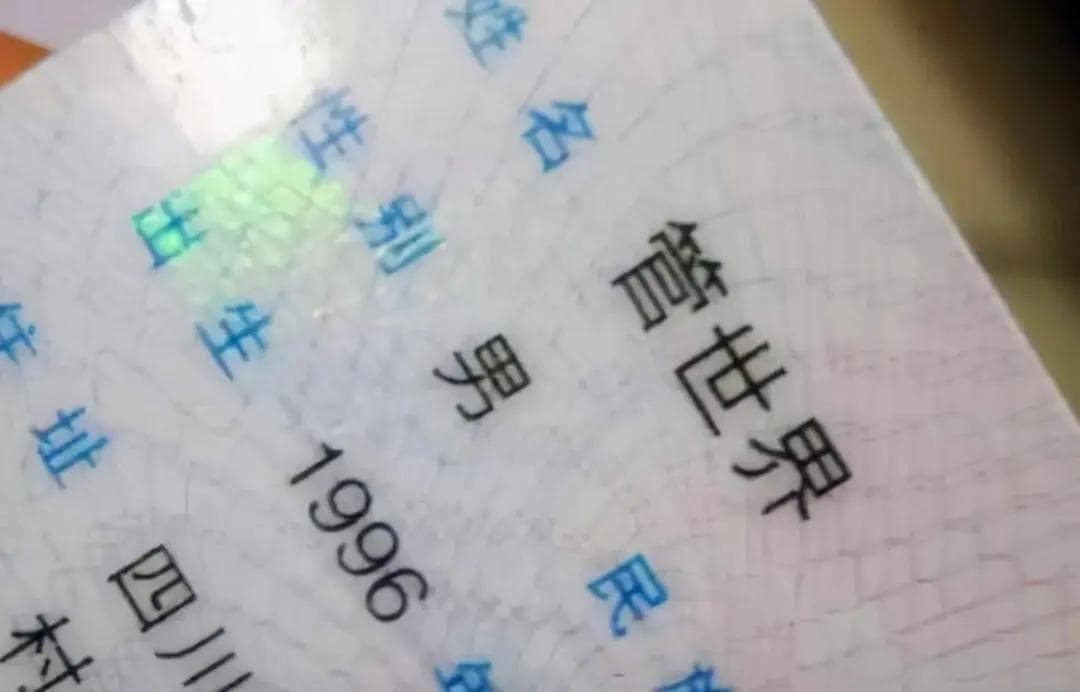 姓名 管世界
性别 男 民族
出生 1996 年
住址 四川
村